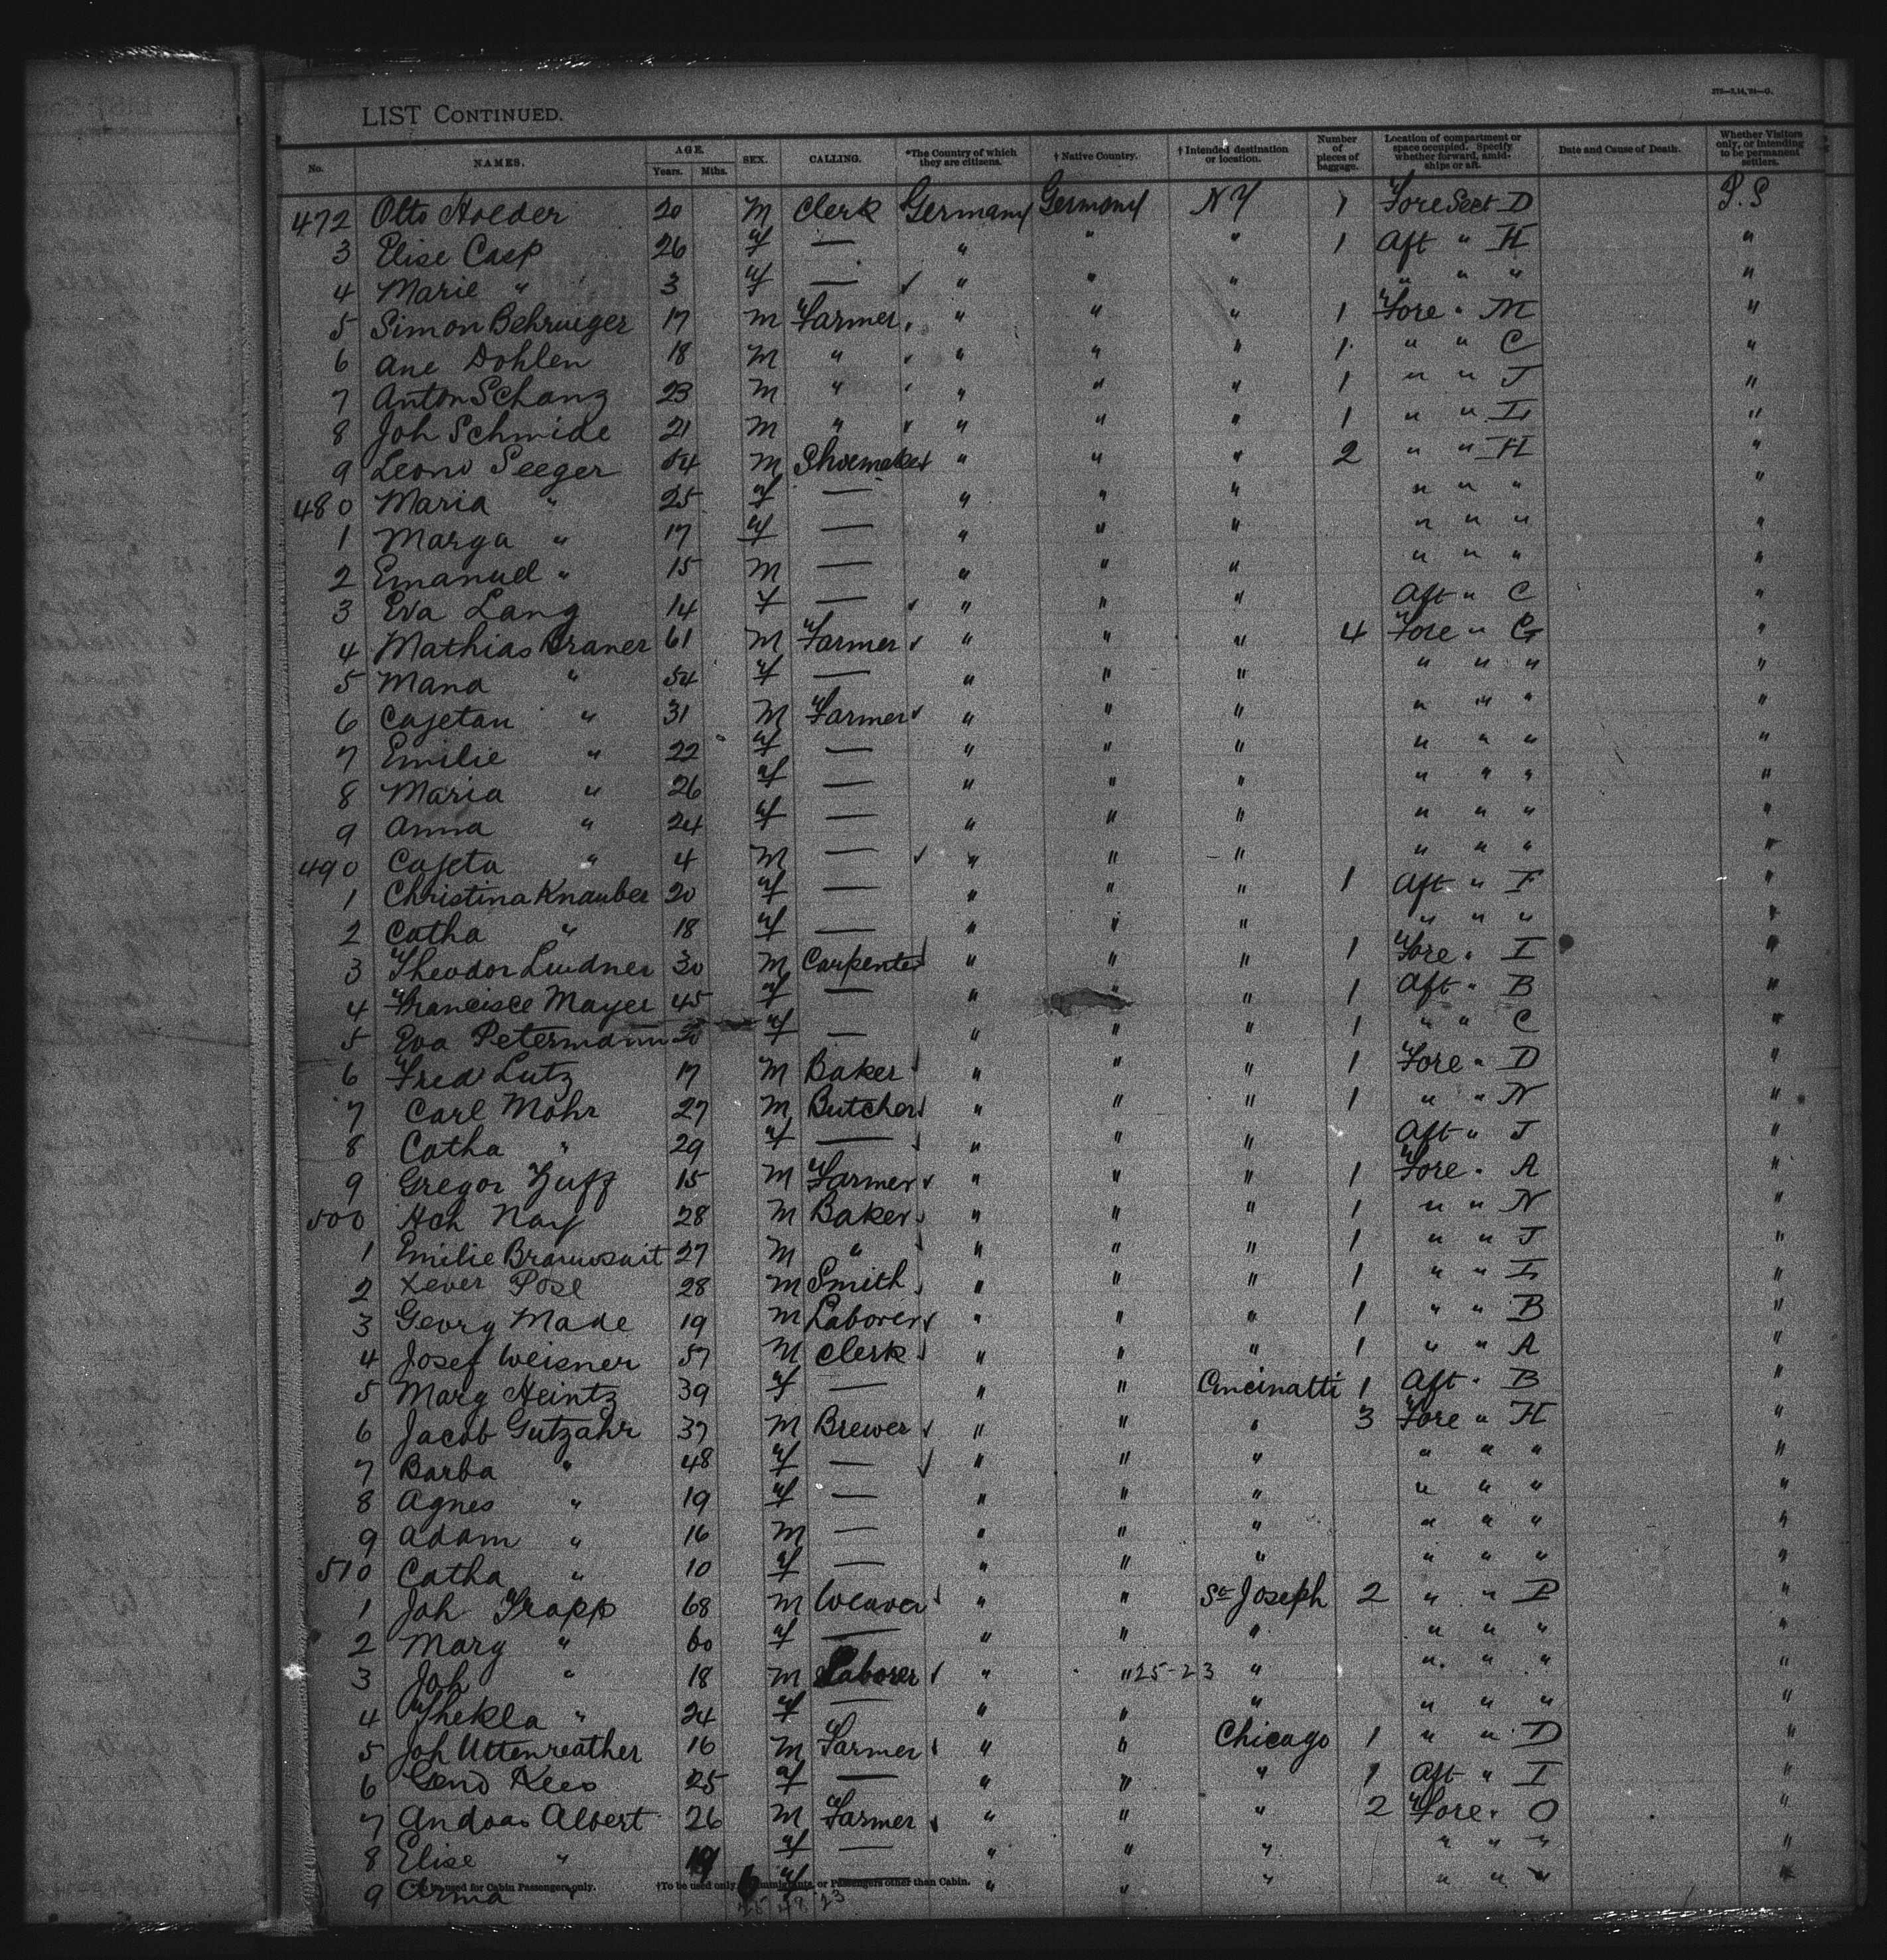 272—3,14,'91—G.
LIST CONTINUED.
No. NAMES. AGE. Years. Mths. SEX. CALLING. *The Country of which they are citizens. † Native Country. † Intended destination or location. Number of pieces of baggage. Location of compartment or space occupied. Specify whether forward, amidships or aft. Date and Cause of Death. Whether Visitors only, or intending to be permanent settlers.
472 Otto Holder 20 M Clerk Germany Germany NY 1 Fore Sect D P.S
3 Elise Casp 26 f — " " " 1 Aft " H "
4 Marie " 3 f — " " " " " " "
5 Simon Behrueger 17 M Farmer " " " 1 Fore " M "
6 Ane Dohlen 18 M " " " " 1 " " C "
7 Anton Schanz 23 M " " " " 1 " " J "
8 Joh Schmide 21 M " " " " 1 " " L "
9 Leono Seeger 54 M Shoemaker " " " 2 " " H "
480 Maria " 25 f — " " " " " " "
1 Marga " 17 f — " " " " " " "
2 Emanuel " 15 M — " " " " " " "
3 Eva Lang 14 f — " " " Aft " C "
4 Mathias Craner 61 M Farmer " " " 4 Fore " G "
5 Mana " 54 f — " " " " " " "
6 Cajetan " 31 M Farmer " " " " " " "
7 Emilie " 22 f — " " " " " " "
8 Maria " 26 f — " " " " " " "
9 Anna " 24 f — " " " " " " "
490 Cajeta " 4 M — " " " " " " "
1 Christina Knauber 20 f — " " " 1 Aft " F "
2 Catha " 18 f — " " " " " " "
3 Theodor Lindner 30 M Carpenter " " " 1 Fore " I "
4 Francisce Mayer 45 f — " " " 1 Aft " B "
5 Eva Petermann 20 f — " " " 1 " " C "
6 Fred Lutz 17 M Baker " " " 1 Fore " D "
7 Carl Mohr 27 M Butcher " " " 1 " " N "
8 Catha " 29 f — " " " Aft " J "
9 Gregor Huff 15 M Farmer " " " 1 Fore " A "
500 Hch Nay 28 M Baker " " " 1 " " N "
1 Emilie 27 M " " " " 1 " " J "
2 Xever Pose 28 M Smith " " " 1 " " L "
3 Georg Made 19 M Laborer " " " 1 " " B "
4 Josef Weisner 57 M Clerk " " " 1 " " A "
5 Marg Heintz 39 f — " " Cincinatti 1 Aft " B "
6 Jacob Gutzahr 37 M Brewer " " " 3 Fore " H "
7 Barba " 48 f — " " " " " " "
8 Agnes " 19 f — " " " " " " "
9 Adam " 16 M — " " " " " " "
510 Catha " 10 f — " " " " " " "
1 Joh Trapp 68 M Weaver " " St Joseph 2 " " P "
2 Mary " 60 f — " " " " " " "
3 Joh " 18 M Laborer " " 25-23 " " " " "
4 Thekla " 24 f — " " " " " " "
5 Joh Uttenreather 16 M Farmer " " Chicago 1 " " D "
6 Kees 25 f — " " " 1 Aft " I "
7 Andras Albert 26 M Farmer " " " 2 Fore " O "
8 Elise " 19 f — " " " " " " "
9 Anna " 6 f — " " " " " " "
To be used for Cabin Passengers only. †To be used only for Immigrants, or Passengers other than Cabin.